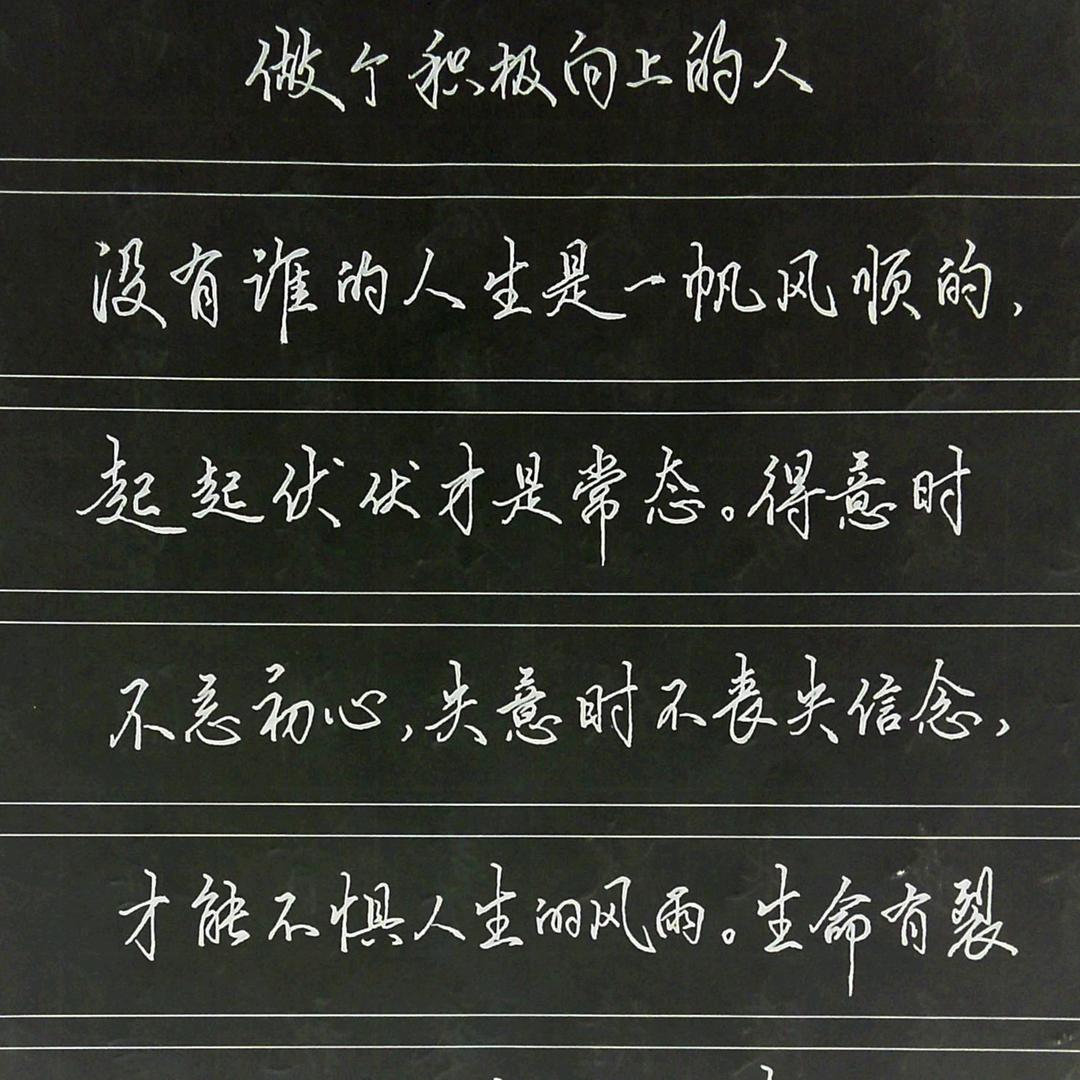 做个积极向上的人
没有谁的人生是一帆风顺的，
起起伏伏才是常态。得意时
不忘初心，失意时不丧失信念，
才能不惧人生的风雨。生命有裂